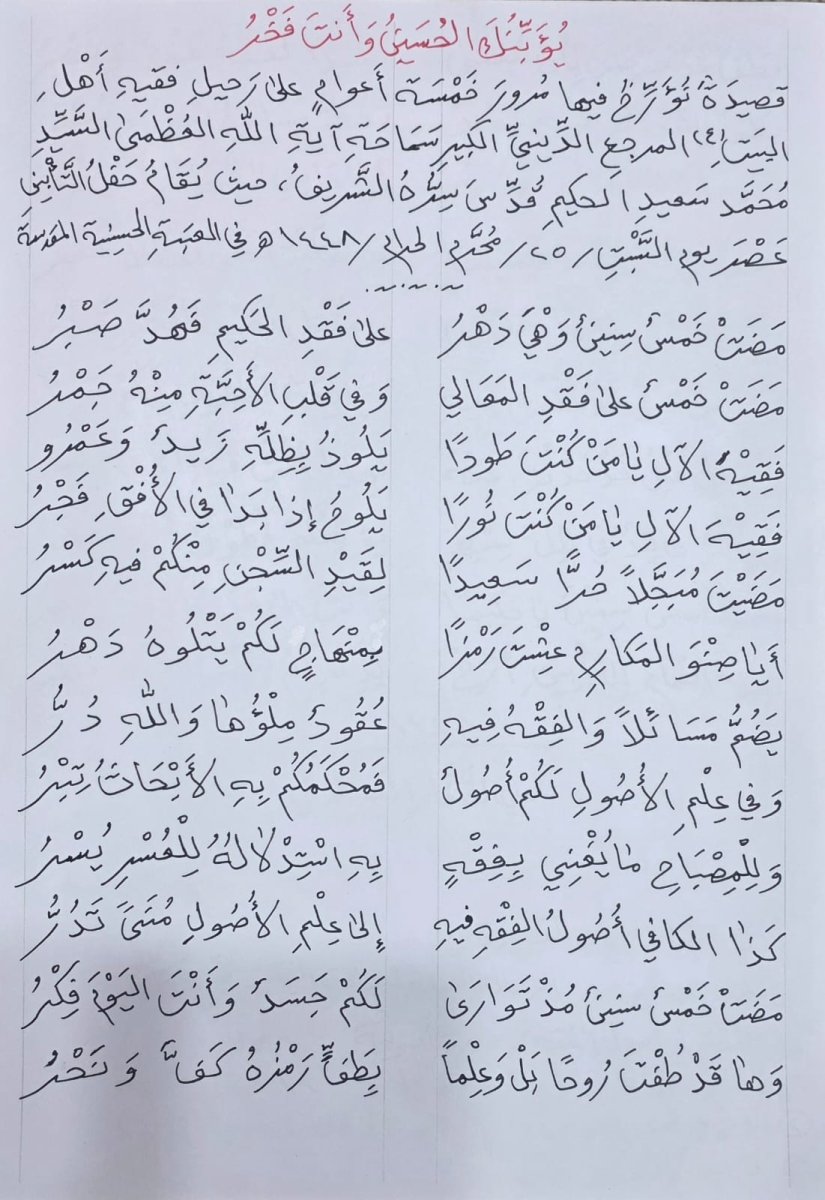 يُؤَبِّنُكَ الحُسَينُ وَأَنتَ فَخْرُ
قصيدَةٌ نُؤَرِّخُ فيها مُرورَ خَمْسَةِ أَعوامٍ على رَحيلِ فقيهِ أَهْلِ
البَيتِ(ع) المرجعِ الدِّينيِّ الكبيرِ سَمَاحَةِ آيةِ اللهِ العُظْمَى السَّيِّدِ
مُحَمَّد سَعيدِ الحكيمِ قُدِّسَ سِرُّهُ الشَّريفُ، حيثُ يُقَامُ حَفْلُ التَّأْبِينِ
عَصْرَ يومِ السَّبْتِ/٢٥/مُحَرَّمِ الحرامِ/١٤٤٨هـ في العتبةِ الحسينيةِ المقدسة
مَضَتْ خَمْسٌ سِنينٌ وَهْيَ دَهْرُ على فَقْدِ الحَكيمِ فَهُدَّ صَبْرُ
مَضَتْ خَمْسٌ على فَقْدِ المَعَالي وَفي قَلْبِ الأَحِبَّةِ مِنْهُ جَمْرُ
فَقِيْهَ الآلِ يا مَنْ كُنْتَ طَودًا يَلُوذُ بِظِلِّهِ زَيدٌ وَعَمْرُو
فَقِيْهَ الآلِ يا مَنْ كُنْتَ نُورًا يَلُوحُ إذا بَدَا في الأُفْقِ فَجْرُ
مَضَيْتَ مُبَجَّلاً حُرًّا سَعِيدًا لِقَيْدِ السِّجْنِ مِنْكُمْ فيهِ كَسْرُ
أيا صِنْوَ المَكارِمِ عِشْتَ رَمْزًا بِمِنْهَاجٍ لَكُمْ يَتْلُوهُ دَهْرُ
يَضُمُّ مَسَائلاً وَالفِقْهُ فِيهِ عُقُودٌ مِلْؤُها وَاللهِ دُرُّ
وَفي عِلْمِ الأُصُولِ لَكُمْ أُصُولٌ فَمُحْكَمُكُمْ بِهِ الأَبْحَاثُ تِبْرُ
وَلِلْمِصْبَاحِ مَا يُغْنِي بِفِقْهٍ بِهِ اسْتِدْلالُهُ لِلْعُسْرِ يُسْرُ
كَذا الكافي أُصُولُ الفِقْهِ فيهِ إلى عِلْمِ الأُصُولِ مُنَىً تَدُرُّ
مَضَتْ خَمْسٌ سِنينٌ مُذْ تَوَارَى لَكُمْ جَسَدٌ وَأَنْتَ اليَوْمَ فِكْرُ
وَها قَدْ طُفْتَ رُوحًا بَلْ وَعِلْماً بِطَفٍّ رَمْزُهُ كَفٌّ وَنَحْرُ